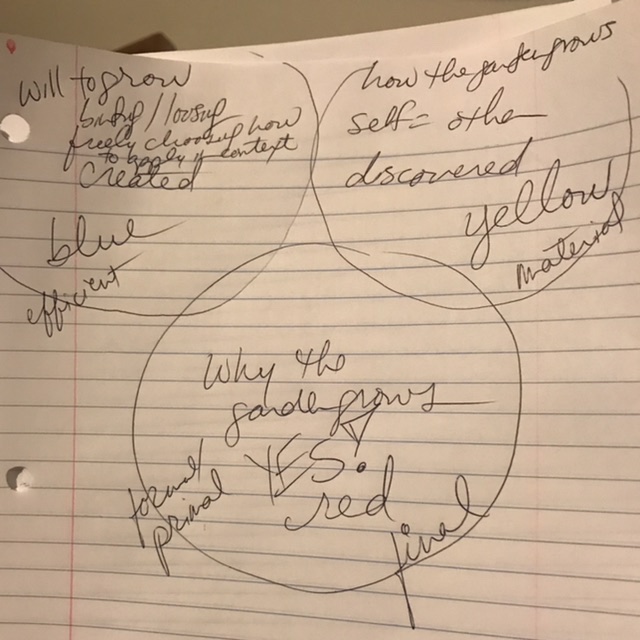 will to grow
/ loosup
freely choosing how
to apply in context
created
blue
efficient
how the garden grows
self = other
discovered
yellow
material
Why the
garden grows
YES!
red
formal/
primal
final